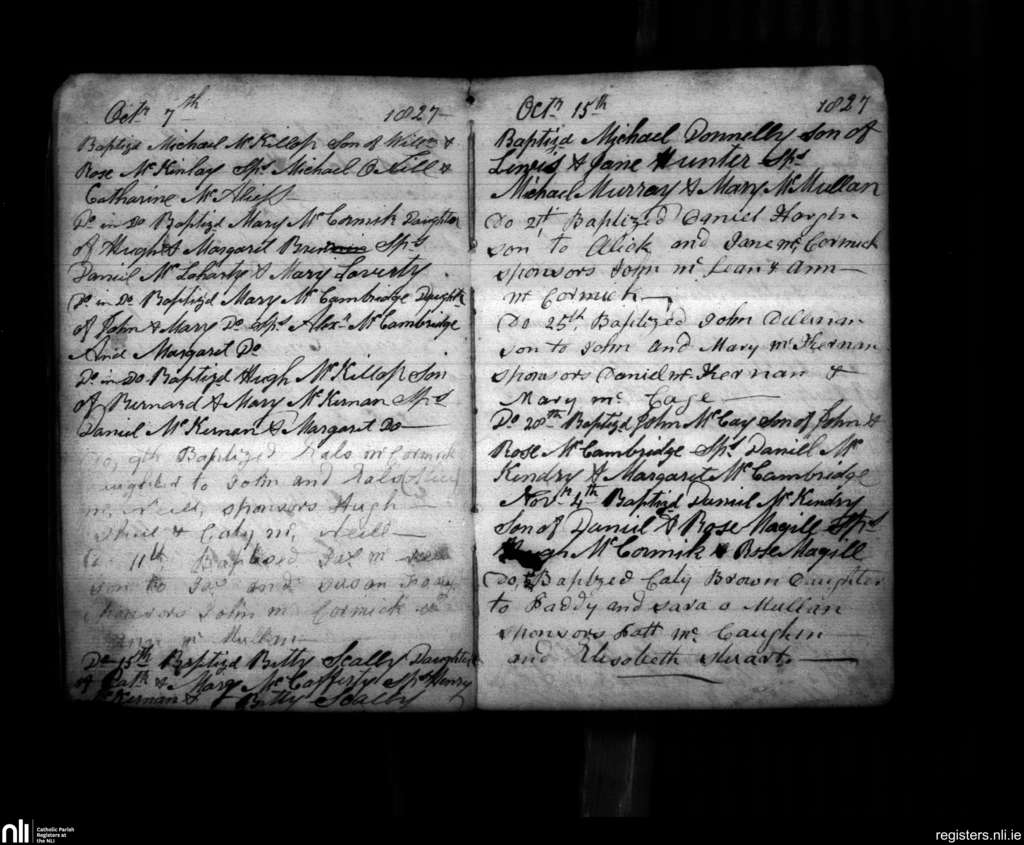 Octr 7th 1827
Baptizd Michael McKillop Son of Willm &
Rose McKinlay Sps Michael O Neill &
Catharine McAlieff
Do in Do Baptizd Mary McCormik Daughter
of Hugh & Margaret Sps
Daniel McLaharty & Mary Laverty
Do in Do Baptizd Mary McCambridge Daughtr
of John & Mary Do Sps Alexr McCambridge
And Margaret Do
Do in Do Baptizd Hugh McKillop Son
of Bernard & Mary McKernan Sps
Daniel McKernan & Margaret Do
Do, 9th Baptized mc Cormick
to John and
mc Neill, sponsors Hugh
& Caty mc, Neill
Do 11th Baptized Jas mc
son to Jas and susan
sponsors John mc Cormick
mc Mullan
Do 15th Baptizd Betty Scally Daughter
of Patk & Mary McCafferty Sps Henry
McKernan & Betty Scally
Octr 15th 1827
Baptizd Michael Donnelly Son of
Lewis & Jane Hunter Sps
Michael Murray & Mary McMullan
Do 21st Baptized Daniel
son to Alick and Jane mc, Cormick
sponsors John mc Lean & Ann
mc Cormick
Do 25th, Baptized John
son to John and Mary mc Kernan
sponsors Daniel mc Kernan &
Mary mc Cage
Do 28th Baptizd John McCay Son of John &
Rose McCambridge Sps Daniel Mc
Kendry & Margaret McCambridge
Novr 4th Baptizd Daniel McKendry
Son of Daniel & Rose Magill Sps
Hugh McCormik & Rose Magill
Do, Baptized Caty Brown Daughter
to Paddy and sara o Mullan
sponsors Patt mc, Caughin
and Elisobeth stuart
nli
Catholic Parish
Registers at
the NLI
registers.nli.ie